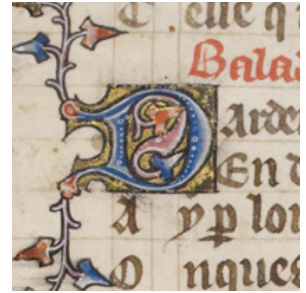 C elle q
Balad
D Arde
En d
A y p lon
O nques